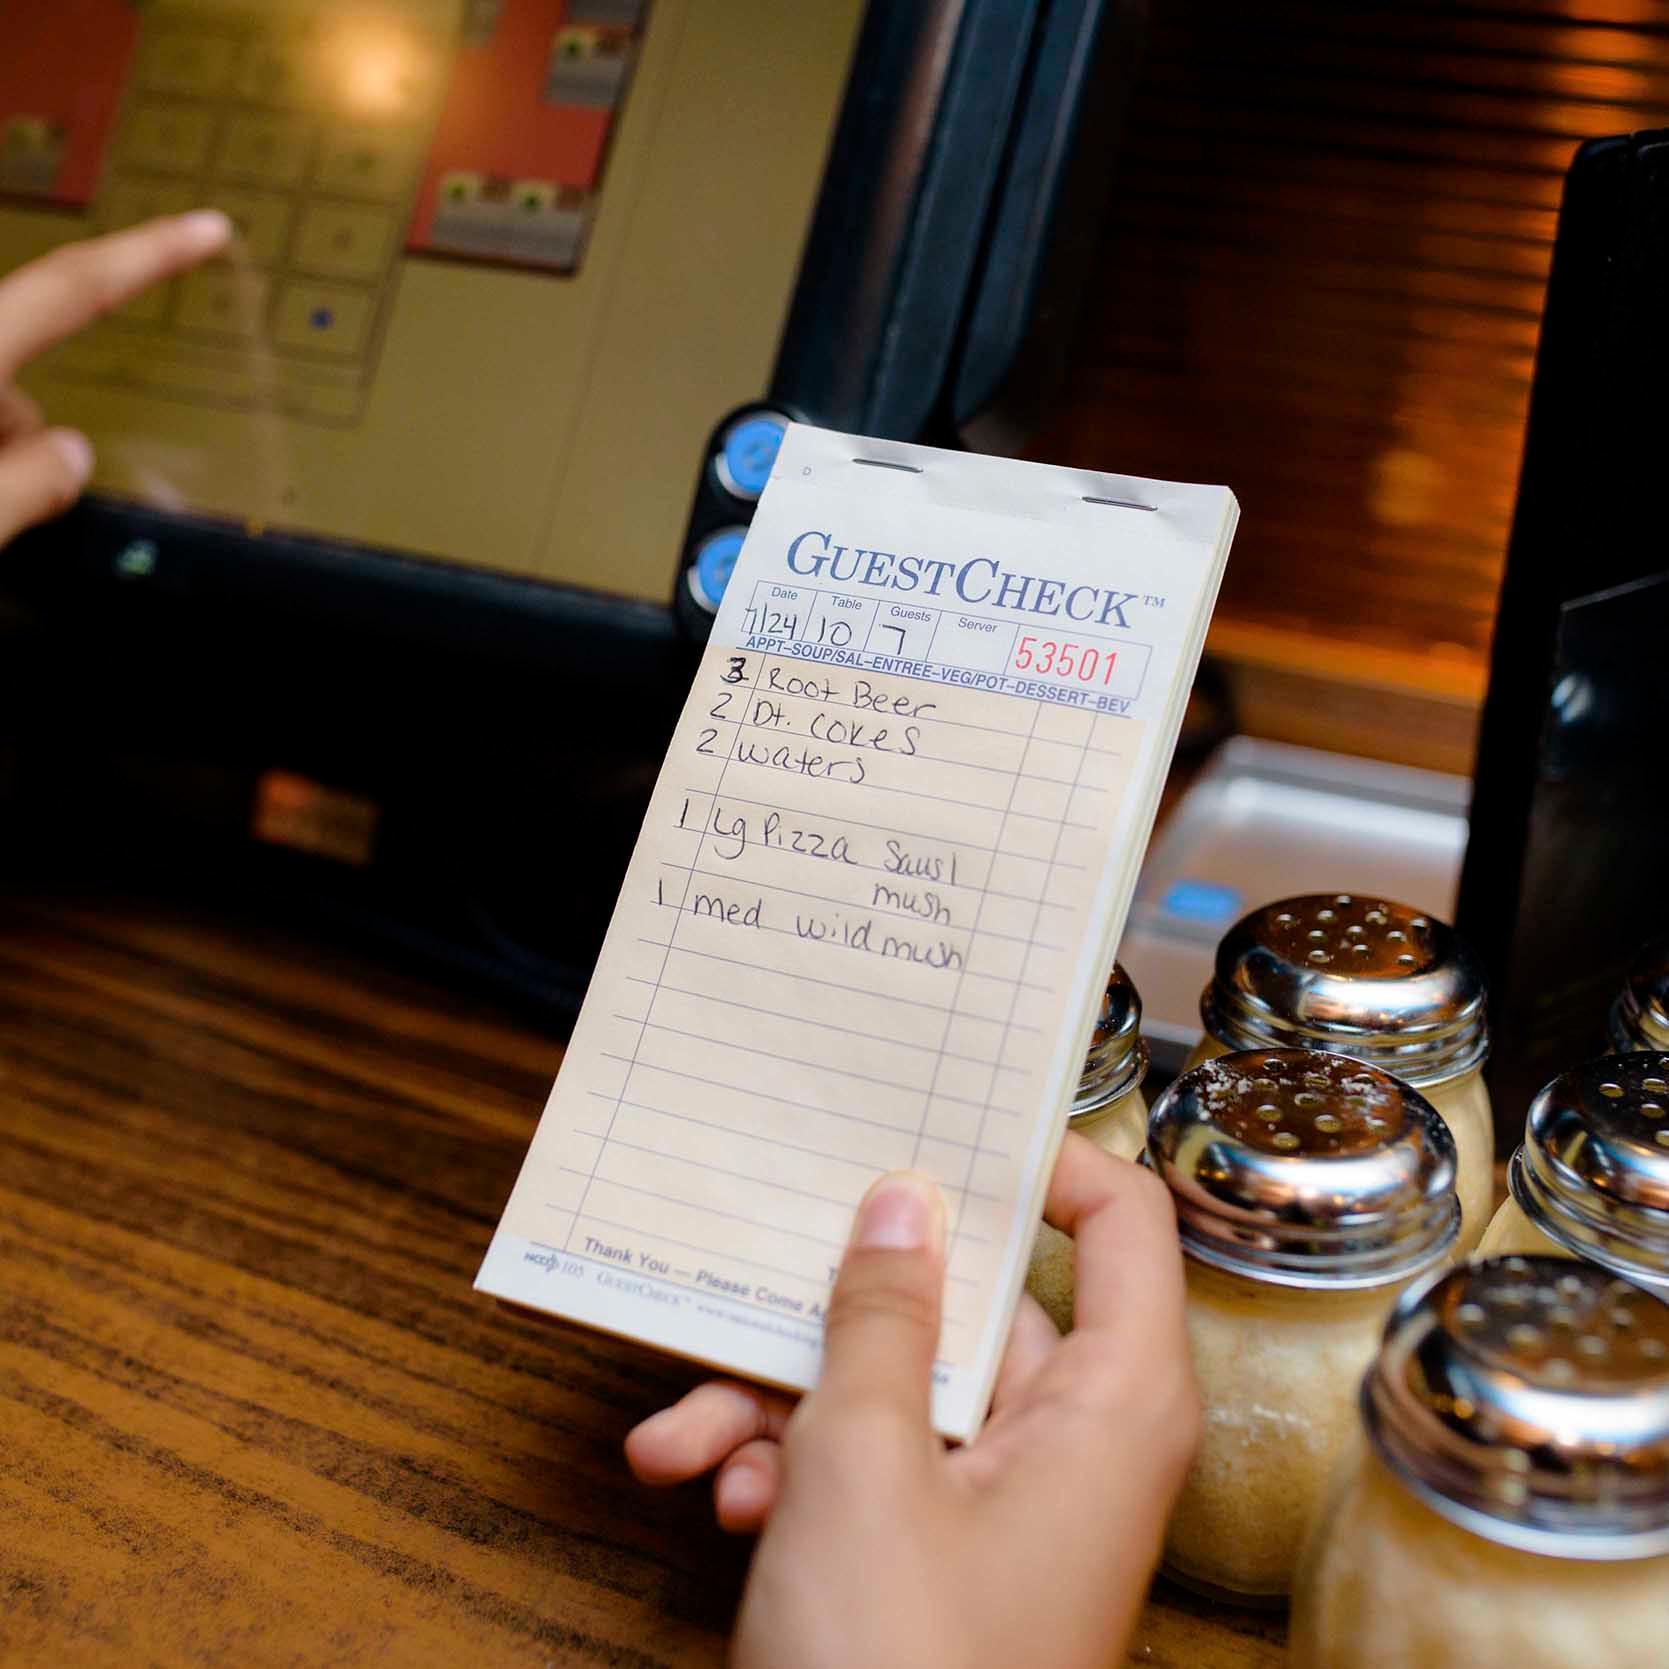 D
GUESTCHECK™
Date Table Guests Server
7/24 10 7 53501
APPT–SOUP/SAL–ENTREE–VEG/POT–DESSERT–BEV
3 Root Beer
2 Dt. cokes
2 waters
1 Lg Pizza Sausl
mush
1 med wild mush
Thank You — Please Come
105 GUESTCHECK™